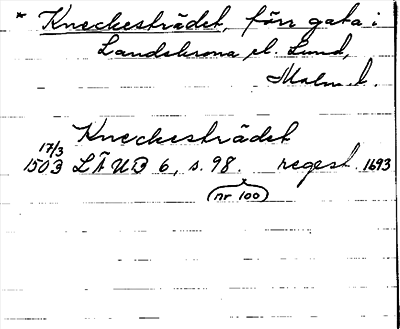 * Kneckesträdet, förr gata i
Landskrona el. Lund,
Malm.l.
Kneckesträdet
17/3
1503 LÄUB 6, s. 98. regest 1693
(nr 100)